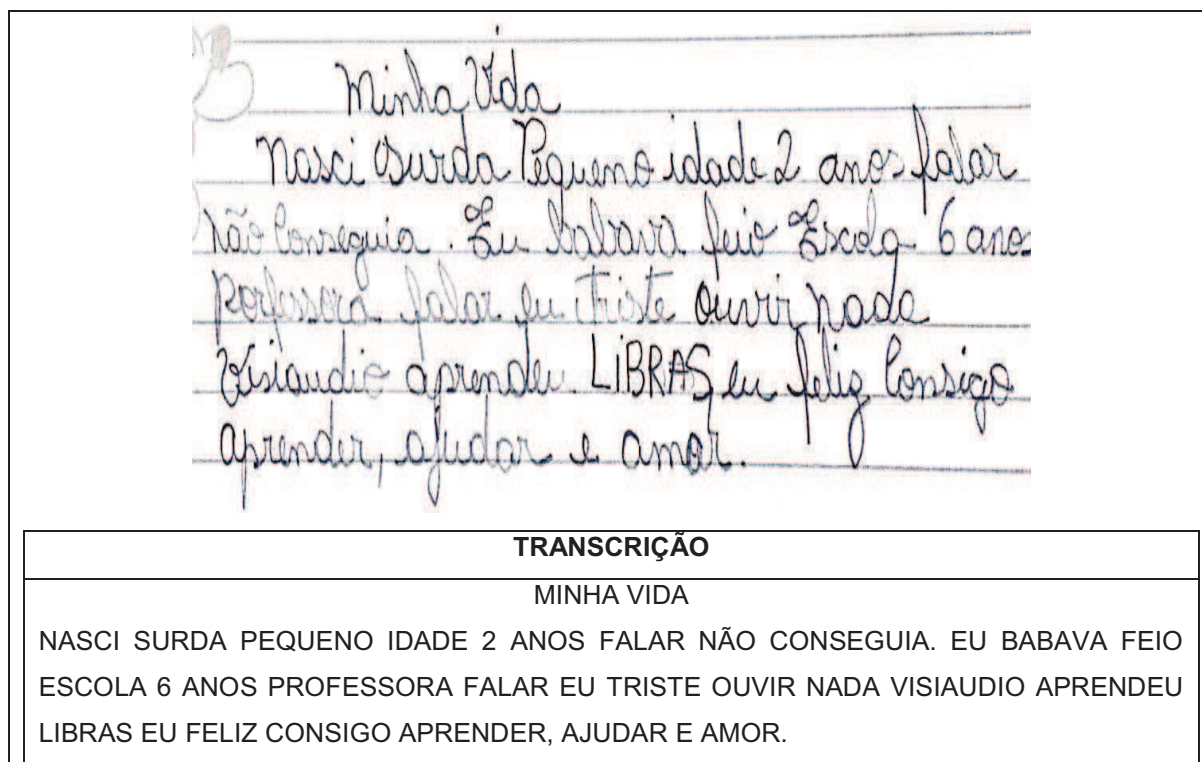 Minha Vida
Nasci Surda Pequeno idade 2 anos falar
não Conseguia. Eu babava feio Escola 6 anos
porfessora falar eu triste ouvir nada
Visiaudio aprendeu LIBRAS eu feliz Consigo
aprender, ajudar e amor.
TRANSCRIÇÃO
MINHA VIDA
NASCI SURDA PEQUENO IDADE 2 ANOS FALAR NÃO CONSEGUIA. EU BABAVA FEIO
ESCOLA 6 ANOS PROFESSORA FALAR EU TRISTE OUVIR NADA VISIAUDIO APRENDEU
LIBRAS EU FELIZ CONSIGO APRENDER, AJUDAR E AMOR.